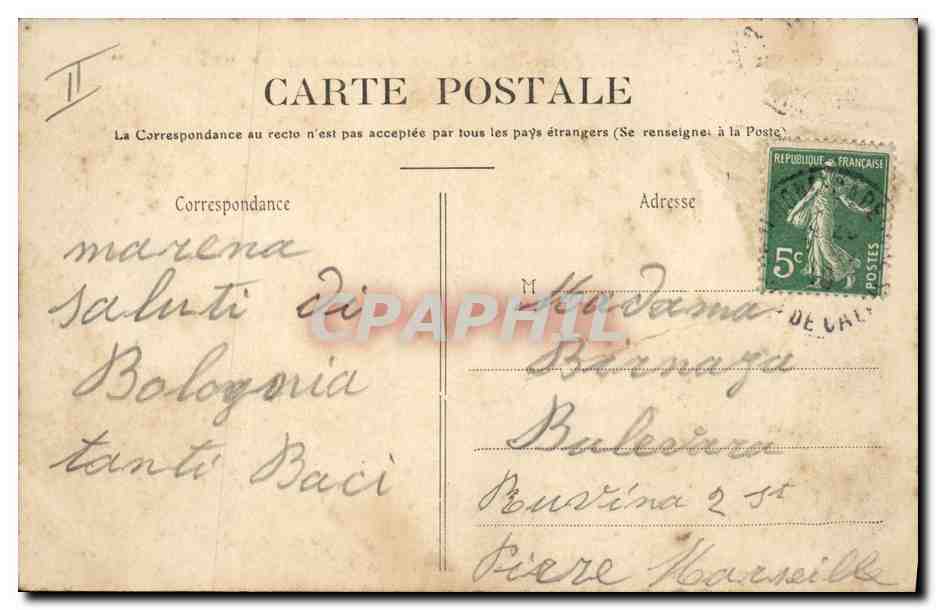 II
CARTE POSTALE
La Correspondance au recto n'est pas acceptée par tous les pays étrangers (Se renseigner à la Poste)
Correspondance
marena
saluti di
Bolognia
tanti Baci
Adresse
REPUBLIQUE FRANÇAISE
5c
POSTES
DE CAL
M Madama
Birnaza
Bulevara
Ruvina 2 st
Pierre Marseille
CPAPHIL